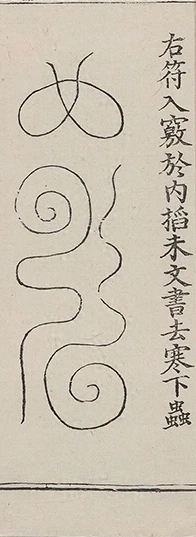 右符入竅於内搯未文書去寒下蟲